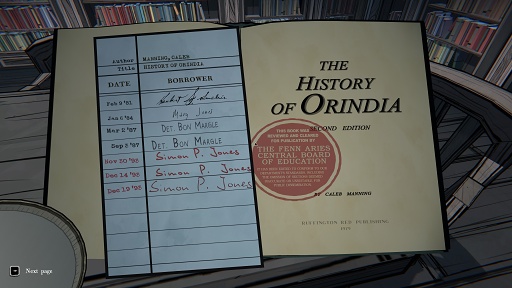 Author MANNING, CALEB
Title HISTORY OF ORINDIA
DATE BORROWER
Feb 9 '81
Jan 6 '84 Mary Jon
Mar 2 '87 DET. BON MARGLE
Sep 8 '87 DET. BON MARGLE
Nov 30 '92 Simon P. Jones
Dec 14 '92 Simon P. Jones
Dec 19 '92 Simon P. Jones
THE
HISTORY
OF ORINDIA
SECOND EDITION
THIS BOOK WAS
REVIEWED AND CLEARED
FOR PUBLICATION BY
THE FENN ARIES
CENTRAL BOARD
OF EDUCATION
BY CALEB MANNING
PUBLISHING
Next page